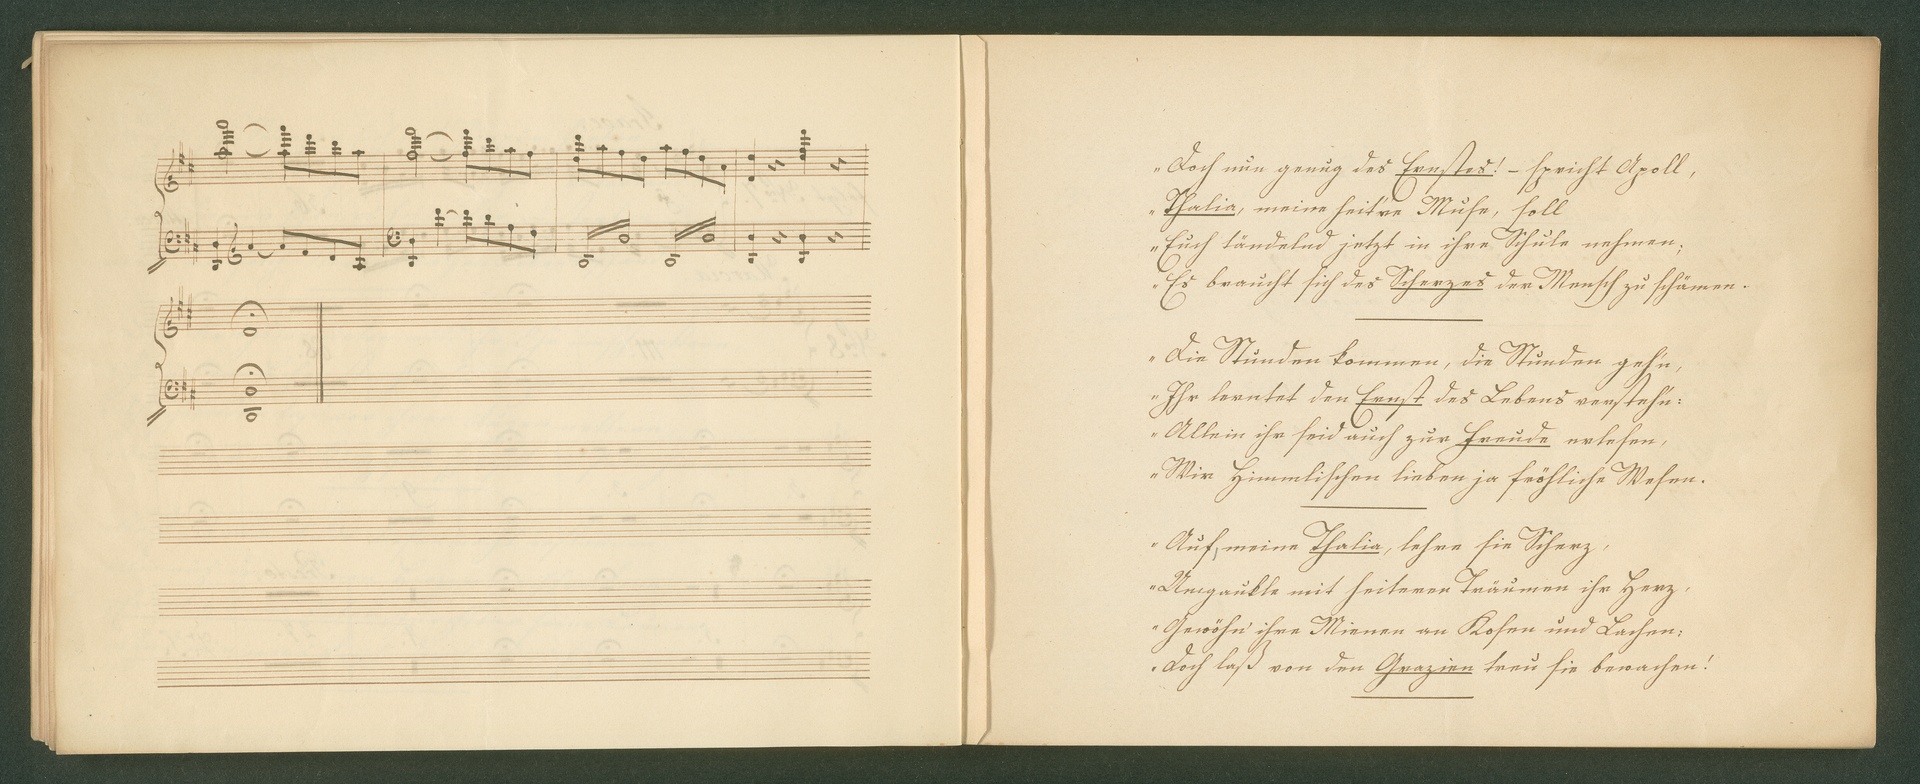 „Doch nun genug des Ernstes! – spricht Apoll,
„Thalia, meine heit're Muse, soll
„Euch tändelnd jetzt in ihre Schule nehmen;
„Es braucht sich des Scherzes der Mensch zu schämen.
„Die Stunden kommen, die Stunden geh'n,
„Ihr lerntet den Ernst des Lebens versteh'n:
„Allein ihr seid auch zur Freude erlesen,
„Wir Himmlischen lieben ja fröhliche Wesen.
„Auf, meine Thalia, lehre sie Scherz,
„Umgaukle mit heiteren Träumen ihr Herz,
„Gewöhn' ihre Mienen an Kosen und Lachen;
„Doch laß von den Grazien treu sie bewachen!